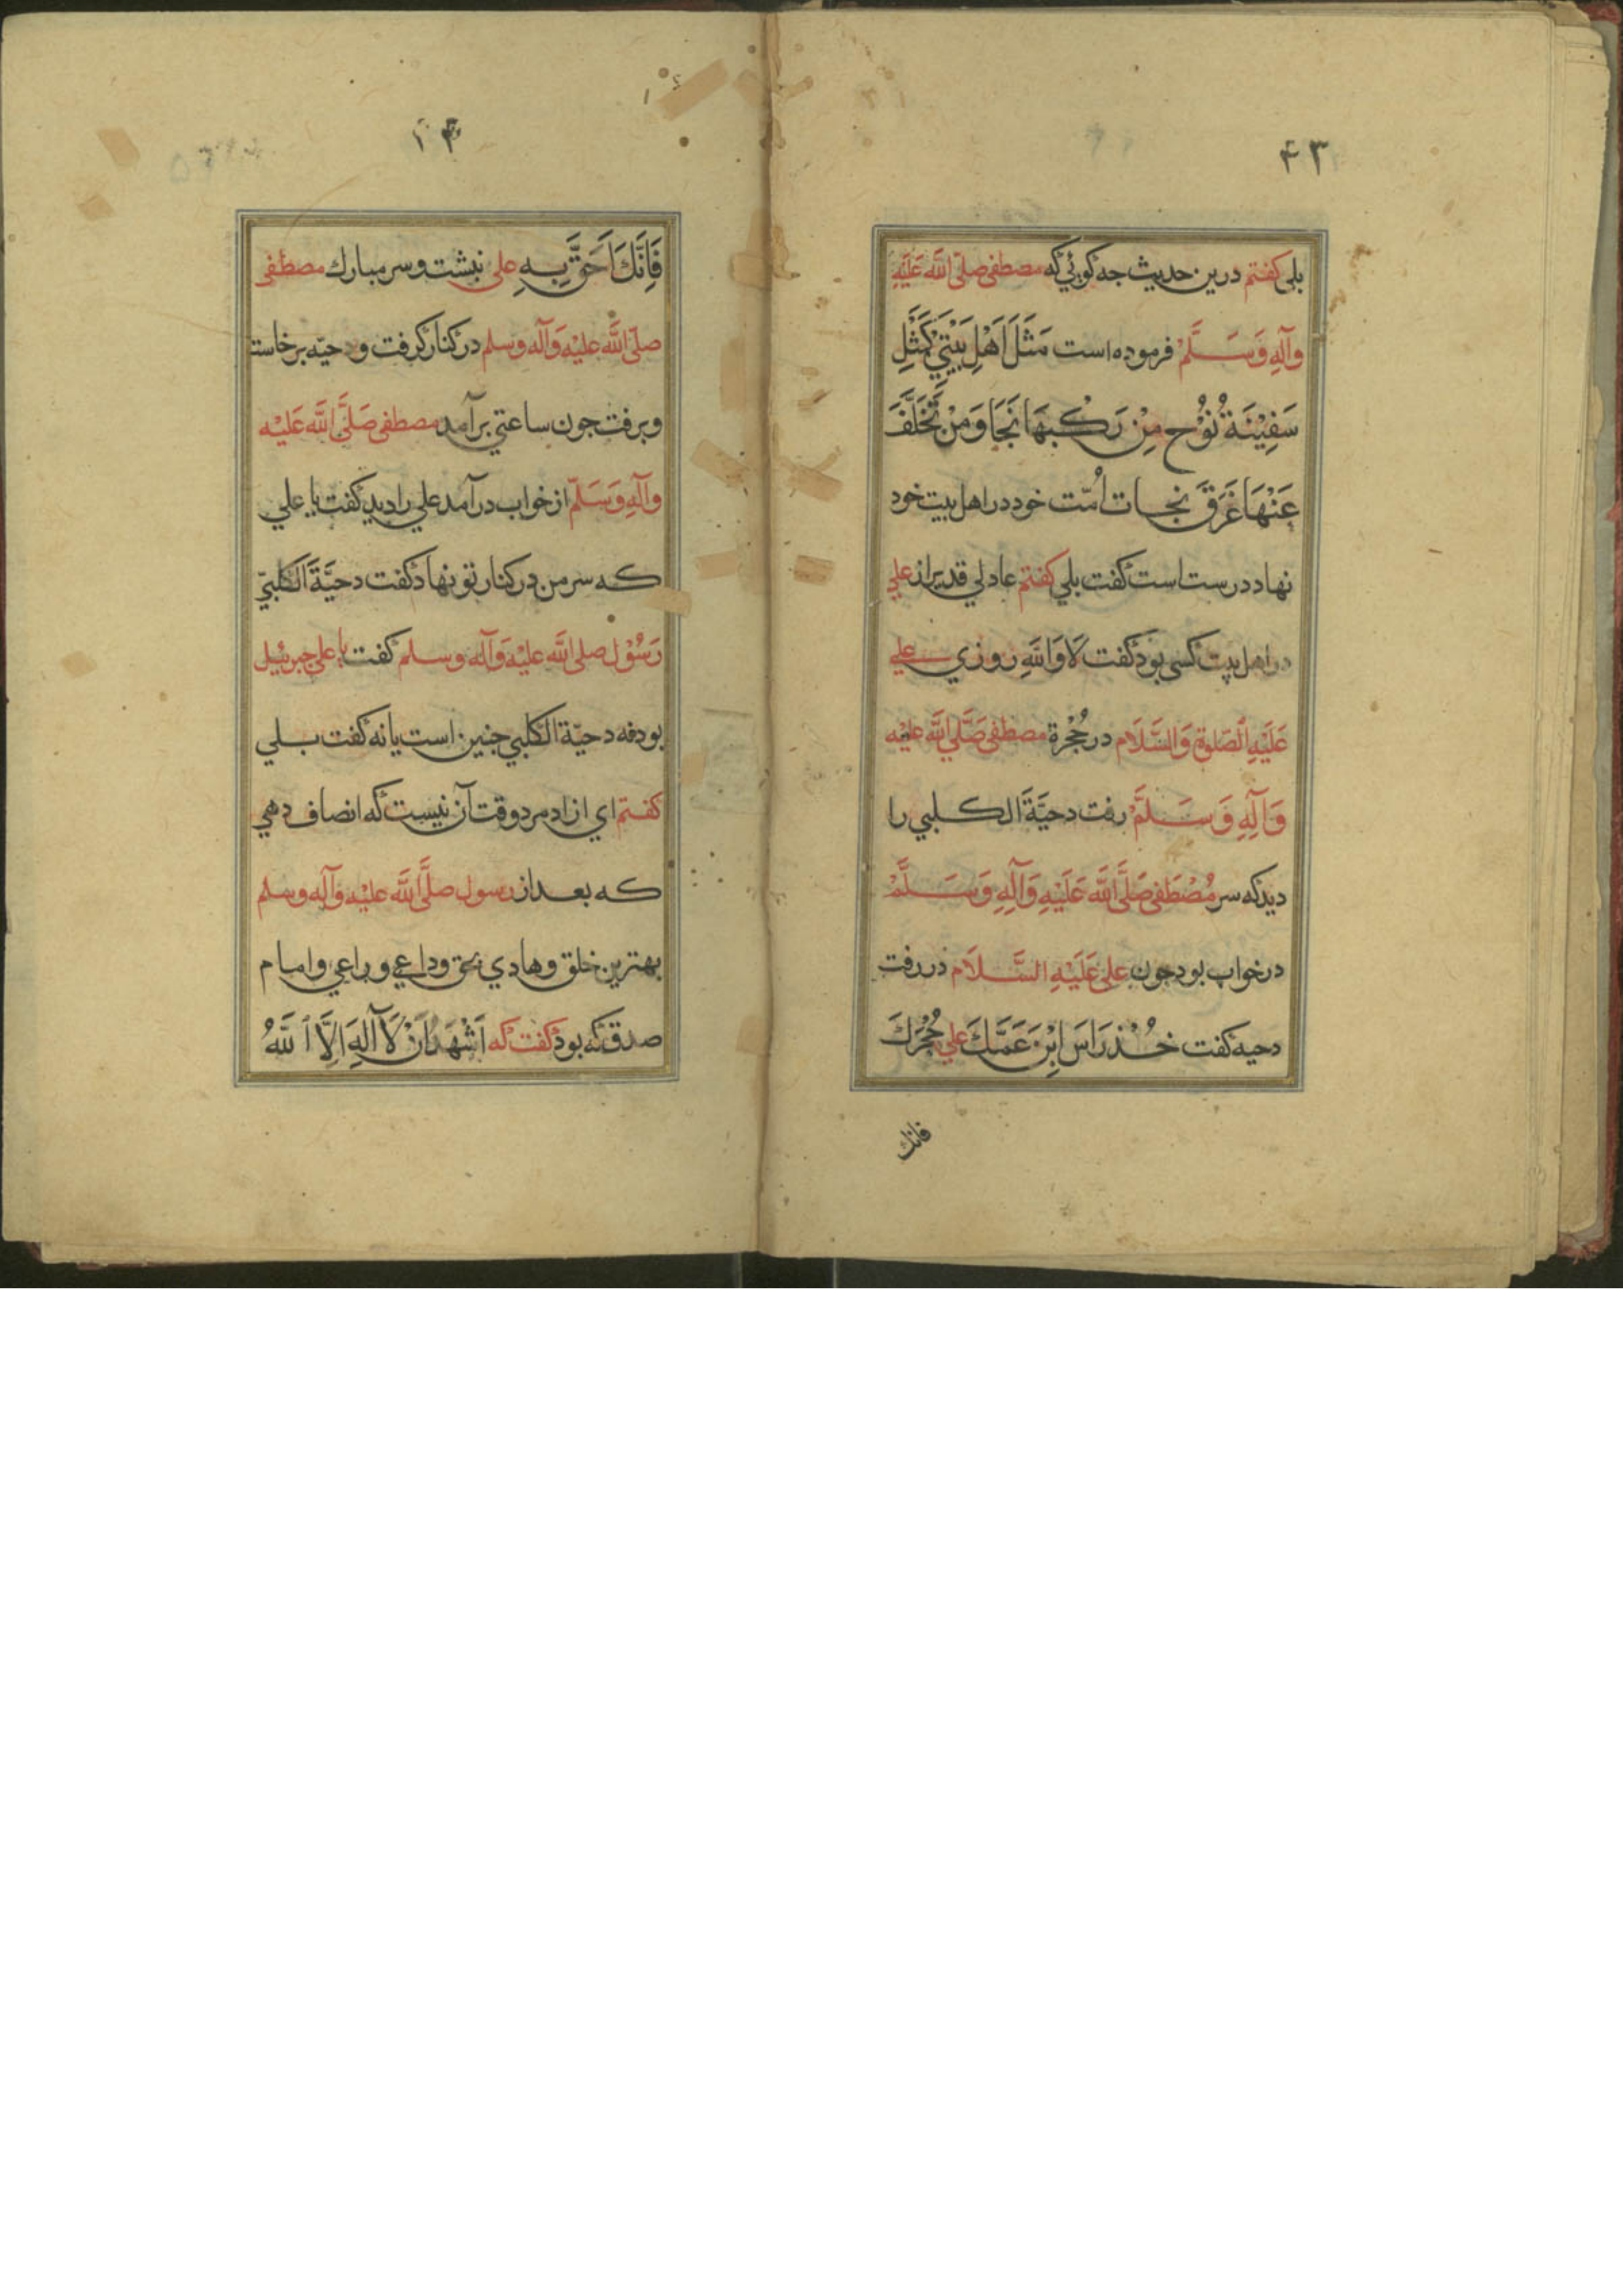 ۴۳
بلی کفتم درین حدیث جه کویي که مصطفی صلّی اللّه عَلَیْهِ
وآلِهِ وَسَلَّمْ فرموده است مَثَلَ اَهْلِ بَیْتِيْ کَمَثَلِ
سَفِیْنَةُ نُوْح مِنْ رَکْبِهَا نَجَا وَمَنْ تَخَلَّفَ
عَنْهَا غَرَقَ نجات اُمّت خود در اهل بیت خود
نهاد درست است کفت بلي کفتم عادلي قدیر از علي
در اهل بیت کسی بود کفت لَا وَاللّهِ روزي علي
عَلَیْهِ الصّلوة وَالسَّلَام در حُجْرة مصطفی صَلَّي اللَّه علیْه
وَآلِهِ وَسَلَّمْ رفت دحیَّةَ الکلبي را
دید که سر مُصْطَفی صَلَّی اللَّه عَلَیْهِ وَآلِهِ وَسَلَّمْ
در خواب بود جون علی عَلَیْهِ السَّلَام در رفت
دحیه کفت خُذ رَاسَ اِبْنَ عَمِّكَ علي حُجْرَكَ
فانك
فَاِنَّكَ اَحَقَّ بِهِ علی نبشت و سر مبارك مصطفی
صلّی اللَّه علیْه وَآله وسلم در کنار کرفت و دحیّه برخاست
و برفت جون ساعتي برآمد مصطفی صَلَّی اللَّه عَلَیْه
وآلِهِ وَسَلّم از خواب درآمد علي را دید کفت یا علي
که سر من در کنار تو نهاد کفت دحیَّةَ الکلبيّ
رَسُوْل صلی اللَّه علیْه وَآله وسلم کفت یا علی جبرئیل
بود نه دحیّة الکلبي جنین است یا نه کفت بلي
کفتم اي ازاد مرد وقت آن نیست که انصاف دهي
که بعد از رسول صلَّی اللَّه علیْه وآله وسلم
بهترین خلق و هادي بحق و داعي و راعي و امام
صدق که بود کفت که اَشْهَدُ اَنْ لَا آلهَ اِلَّا اللَّهُ